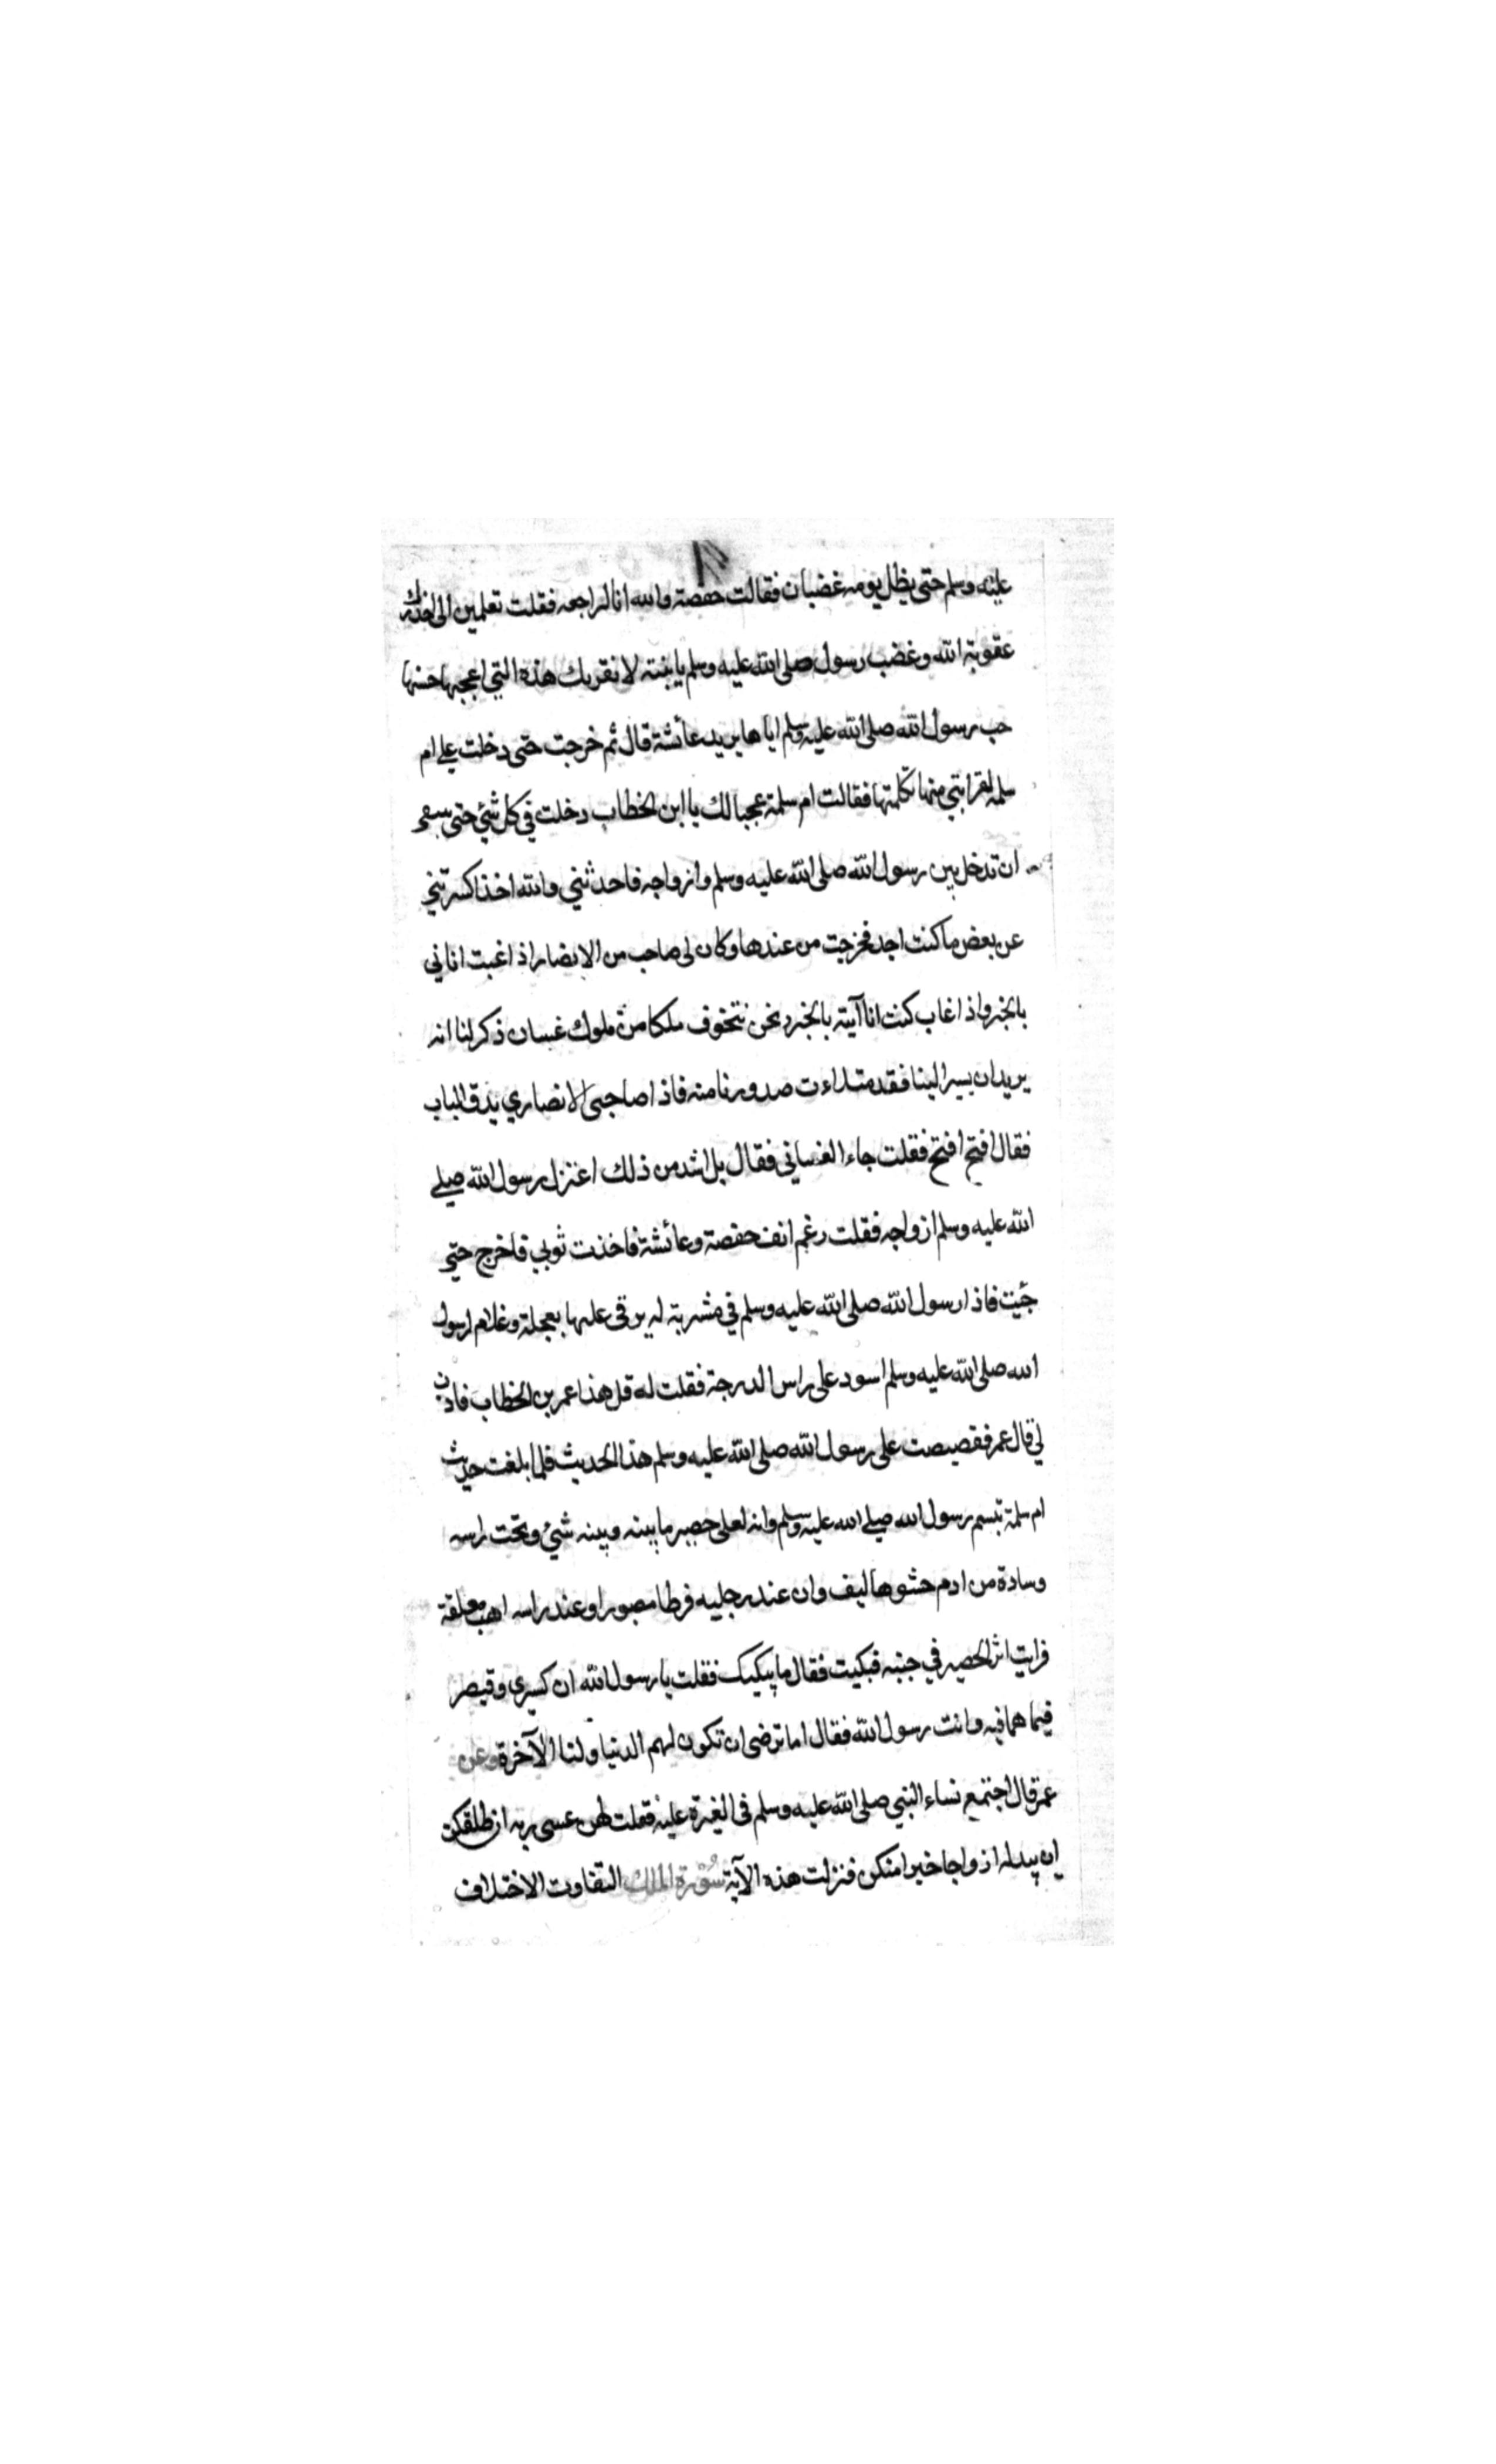 عليه وسلم حتى يظل يومه غضبان فقالت حفصة والله انا لنراجعه فقلت تعلمين اني احذرك
عقوبة الله وغضب رسول صلى الله عليه وسلم يا بنته لا تغرنك هذه التي اعجبها حسنها
حب رسول الله صلى الله عليه وسلم اياها يريد عائشة قال ثم خرجت حتى دخلت على ام
سلمة لقرابتي منها تكلمتها فقالت ام سلمة عجبا لك يا ابن الخطاب دخلت في كل شيئ حتى
ان تدخل بين رسول الله صلى الله عليه وسلم وازواجه فاحدثني والله اخذا كسرتني
عن بعض ما كنت اجد فخرجت من عندها وكان لى صاحب من الانصار اذا غبت اتاني
بالخبر واذا غاب كنت انا آتيه بالخبر ونحن نتخوف ملكا من ملوك غسان ذكر لنا انه
يريد ان يسير الينا فقد متلاءت صدورنا منه فاذا صاحبى الانصاري يدق الباب
فقال افتح افتح فقلت جاء الغساني فقال بل اشد من ذلك اعتزل رسول الله صلى
الله عليه وسلم ازواجه فقلت رغم انف حفصة وعائشة فاخذت ثوبي فاخرج حتى
جئت فاذا رسول الله صلى الله عليه وسلم في مشربة له يرقى عليها بعجلة وغلام لرسول
الله صلى الله عليه وسلم اسود على راس الدرجة فقلت له قل هذا عمر بن الخطاب فاذن
لي قال عمر فقصيصت على رسول الله صلى الله عليه وسلم هذا الحديث فلما بلغت حديث
ام سلمة تبسم رسول الله صلى الله عليه وسلم وانه لعلى حصير ما بينه وبينه شيئ وتحت راسه
وسادة من ادم حشوها ليف وان عند رجليه قرظا مصبورا وعند راسه اهب معلقة
فرايت اثر الحصير في جنبه فبكيت فقال ما يبكيك فقلت يا رسول الله ان كسرى وقيصر
فيما هما فيه وانت رسول الله فقال اما ترضى ان تكون لهم الدنيا ولنا الآخرة وعن
عمر قال اجتمع نساء النبي صلى الله عليه وسلم فى الغيرة عليه فقلت لهن عسى ربه ان طلقكن
ان يبدله ازواجا خيرا منكن فنزلت هذه الآية سورة الملك التفاوت الاختلاف